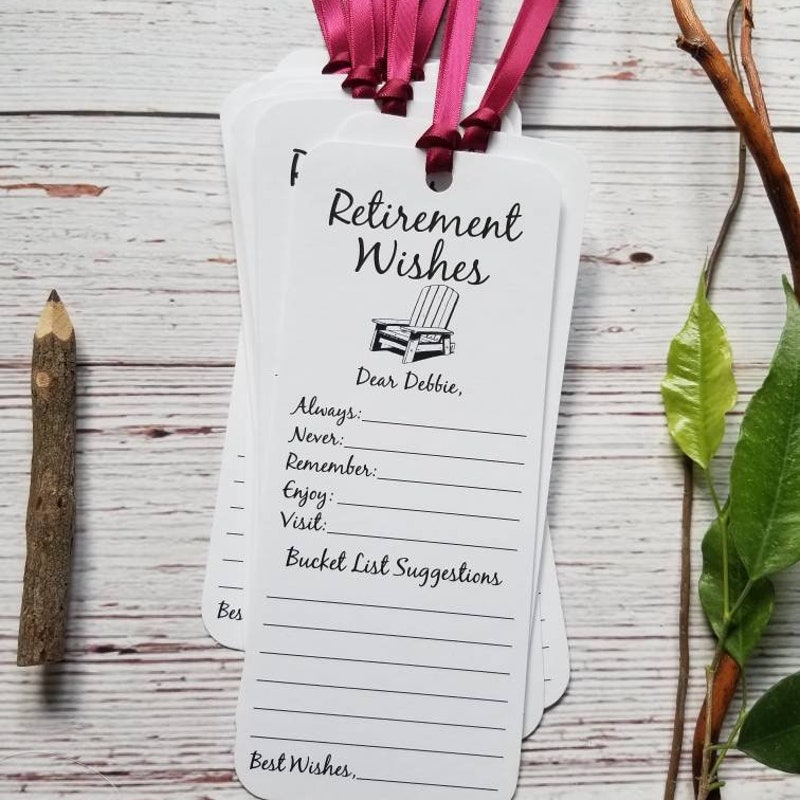 Retirement
Wishes
Dear Debbie,
Always:
Never:
Remember:
Enjoy:
Visit:
Bucket List Suggestions
Best Wishes,
Bes